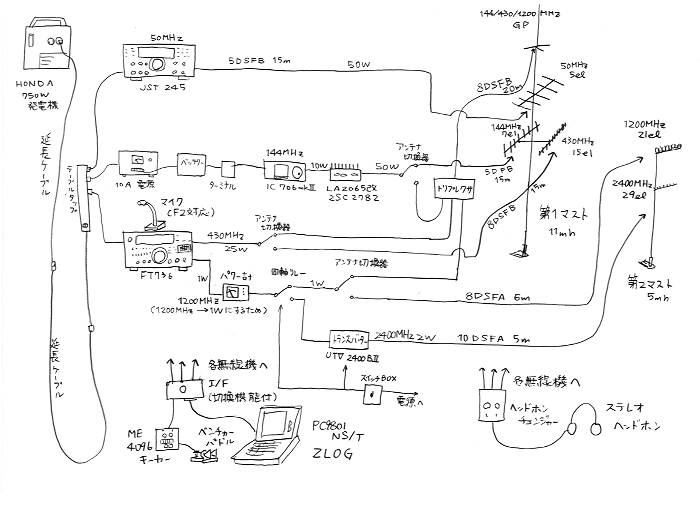 146/430/1200MHz
GP
50MHz
JST 245
5DSFB 15m
50W
8DSFB
20m
50MHz
5el
HONDA
750W
発電機
延長ケーブル
テーブルタップ
10A 電源
バッテリー
ターミナル
144MHz
IC706mkⅡ
10W
LA2065改
2SC2782
50W
アンテナ
切換器
144MHz
7el
5DFB
15m
430MHz
15el
1200MHz
21el
2400MHz
29el
トリプレクサ
8DSFB
15m
第1マスト
11mh
第2マスト
5mh
マイク
(F2対応)
FT736
430MHz
25W
アンテナ
切換器
1W
パワー計
1200MHz
(1200MHz→1Wにするため)
同軸リレー
1W
アンテナ切換器
8DSFA 6m
トランスバーター
UTV 2400BⅡ
2400MHz 2W
10DSFA 5m
スイッチBOX
電源へ
延長ケーブル
各無線機へ
I/F
(切換機能付)
ME
4096
キーヤー
ベンチャー
パドル
PC9801
NS/T
ZLOG
各無線機へ
ヘッドホン
チェンジャー
ステレオ
ヘッドホン